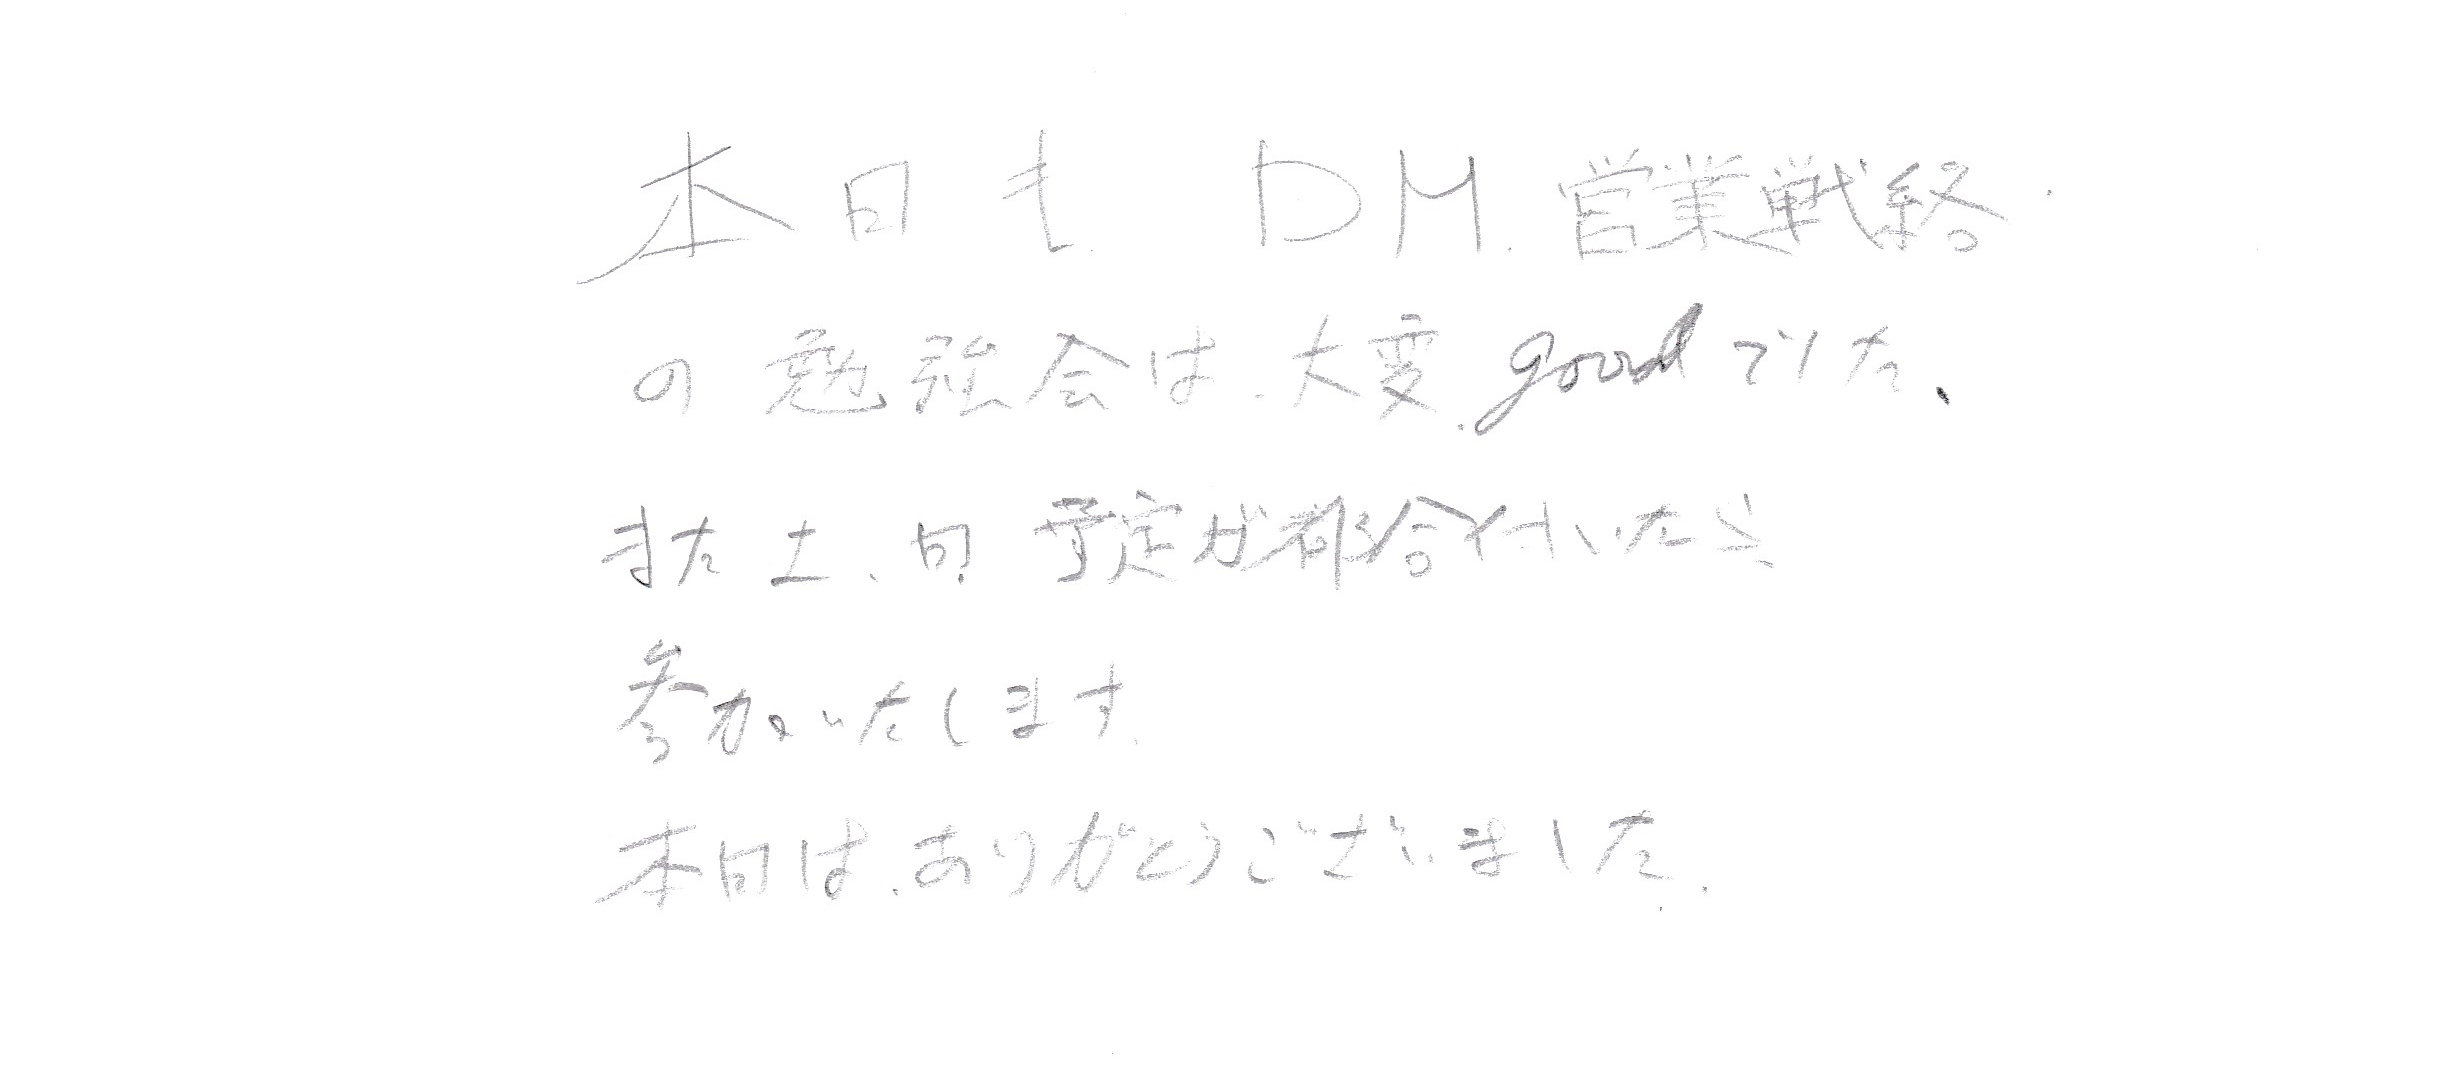 本日も DM.営業戦略
の勉強会は.大変.goodでした、
また土、日.予定が都合付いたら
参加いたします.
本日は.ありがとうございました.